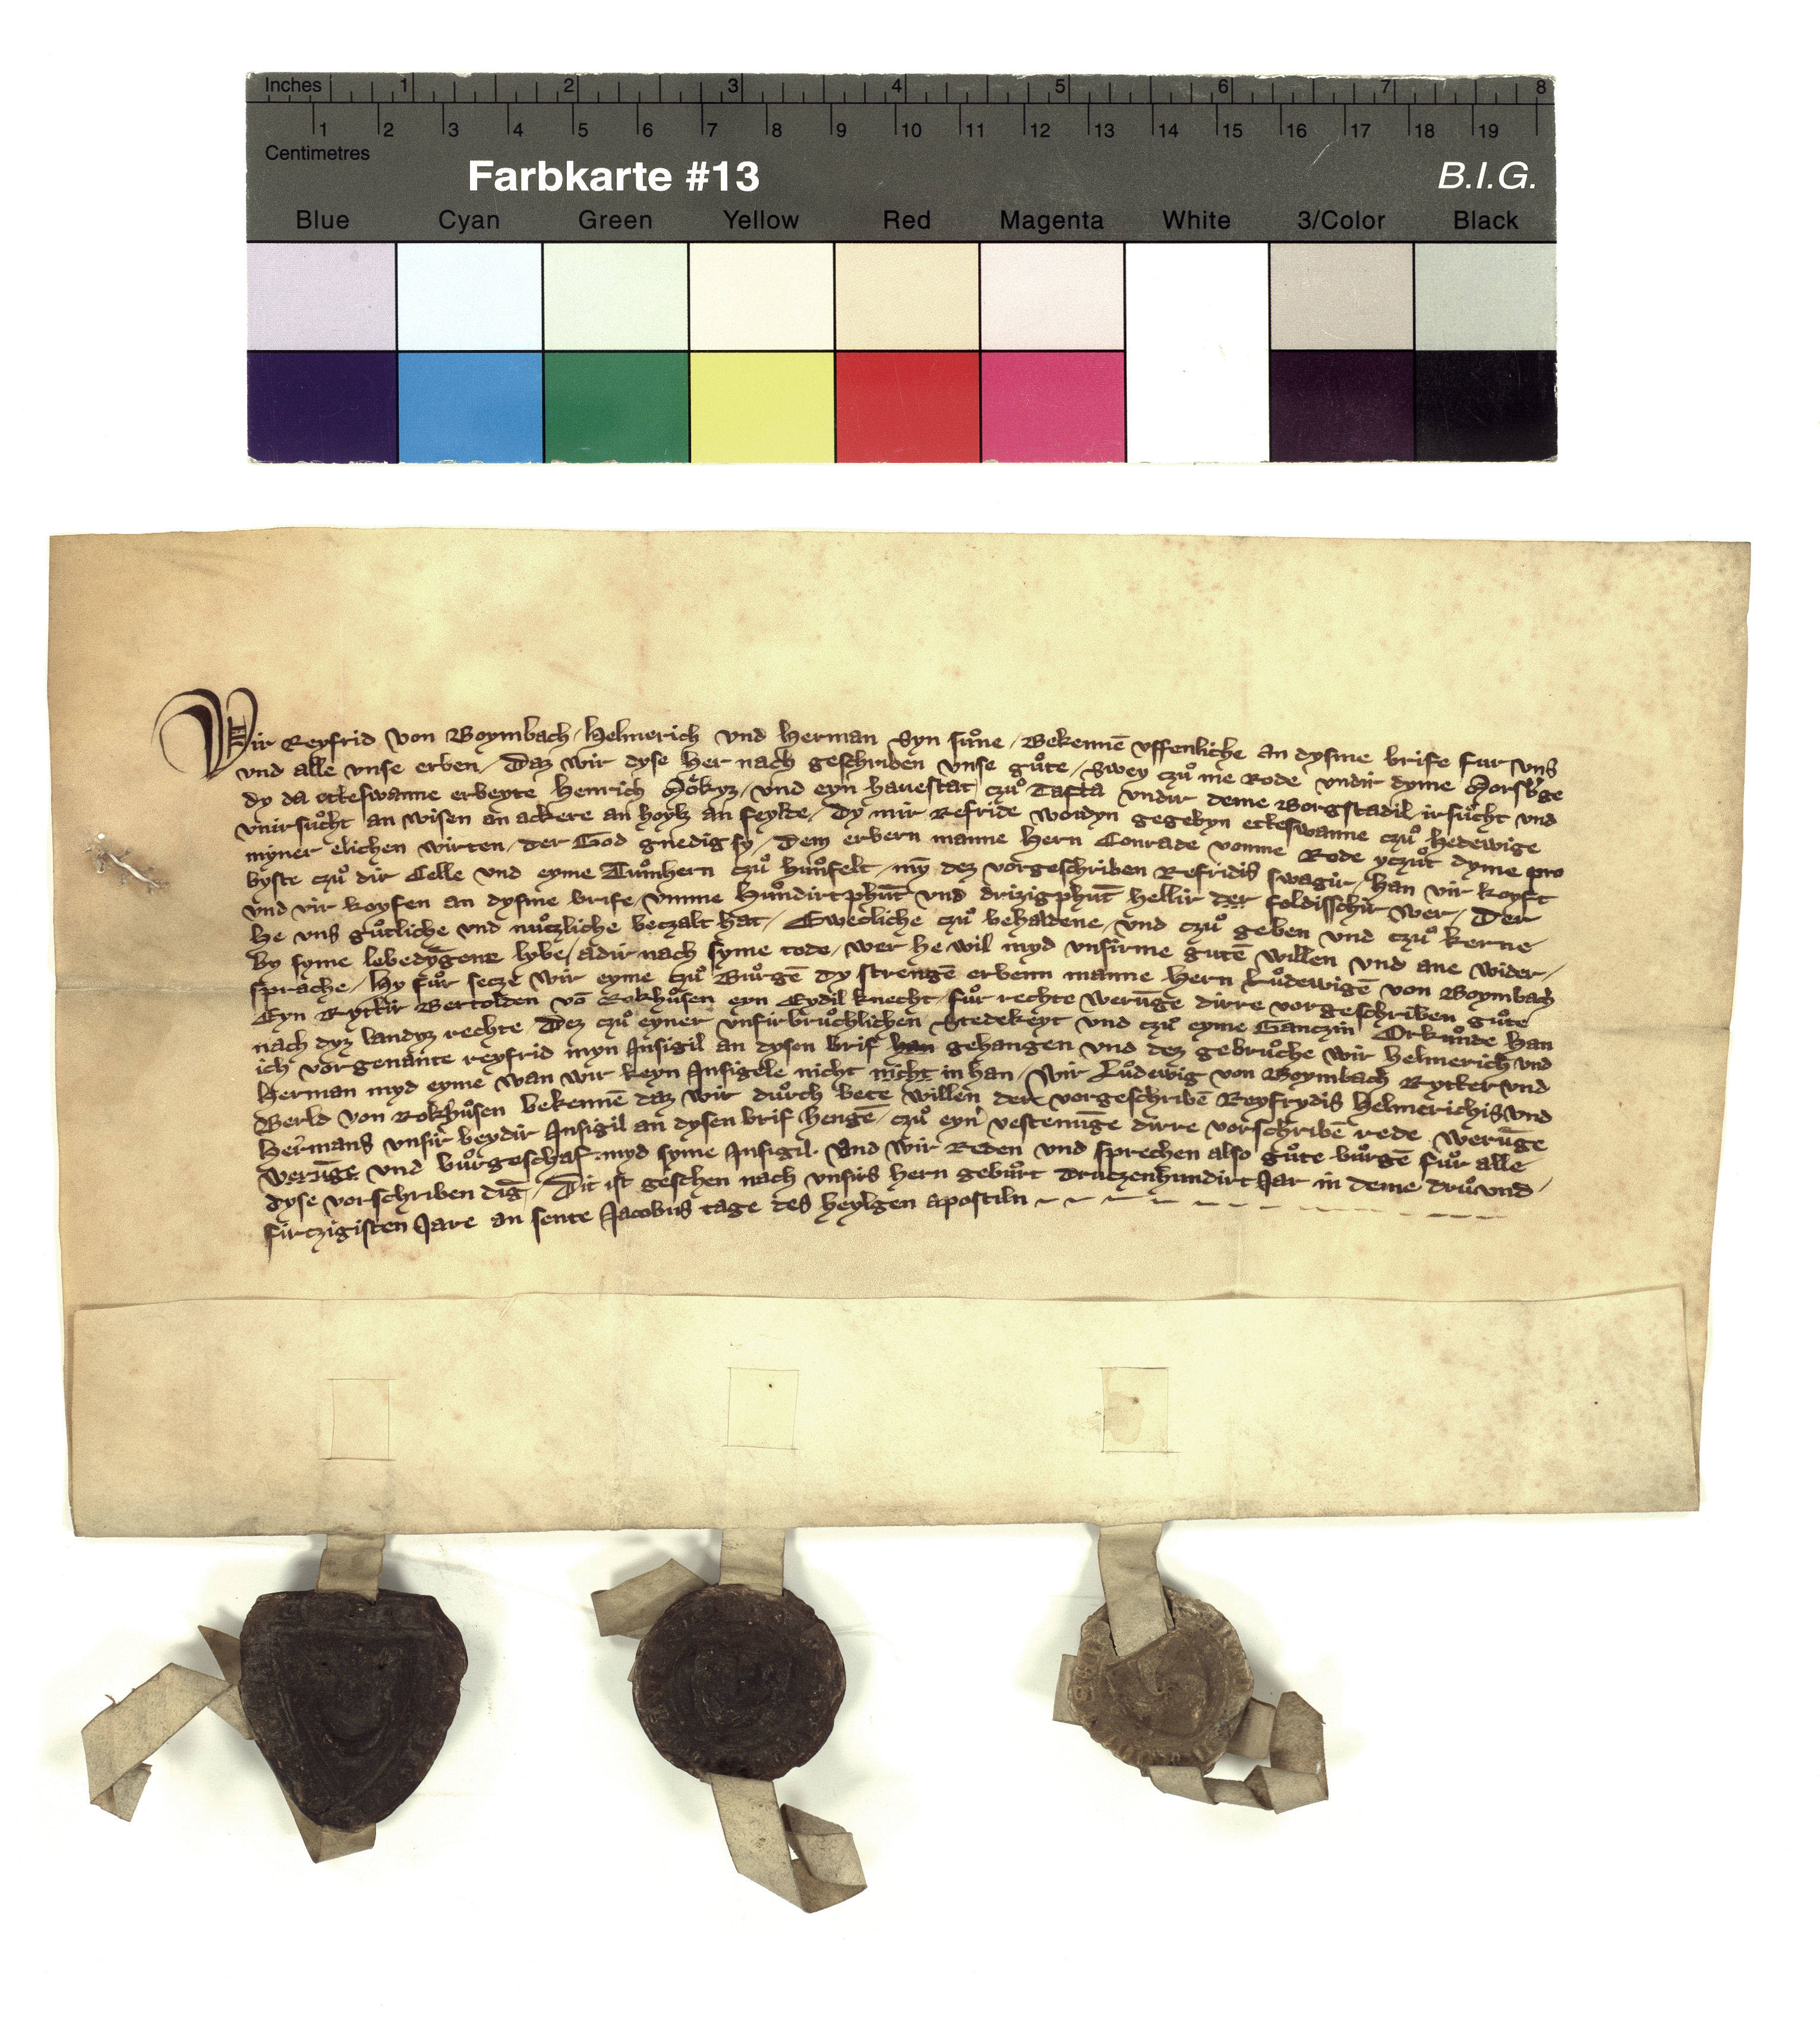 Inches 1 2 3 4 5 6 7 8
1 2 3 4 5 6 7 8 9 10 11 12 13 14 15 16 17 18 19
Centimetres
Farbkarte #13 B.I.G.
Blue Cyan Green Yellow Red Magenta White 3/Color Black
Wir Reyfrid von Boymbach / Helmerich vnd Herman Syn sůne / Bekennē vffenliche an dysme brife fur vns
vnd alle vnse erben / Daz wir dyse her nach geschriben vnse gůte / Swey czů me Rode vndir dyme
dy da etteswanne erbeyte Henrich / vnd eyn hauestat czů Tafta vndir deme Borgstadil irsůcht vnd
vnirsůcht an wisen an ackere an hoylz an feylde / Dy mir Refride wordyn gegebyn etteswanne czů hedewige
myner elichen wirten / der God gnedig sy / Dem erbern manne hern Conrade vomme Rode yczůt dyme pro
byste czů dir Celle vnd eyme Tůmhern czů hůnfelt / dez vorgeschriben Refridis swagir / han vir koyft
vnd vir koyfen an dysme brife / vmme hůndirt phūt vnd drizig phūt hellir der foldisschir wer / Der
he vns gůtliche vnd nůczliche beczalt hat / Ewecliche czů behaldene / vnd czů geben vnd czů kerne
by syme lebedygene lybe / adir nach syme tode / wer he wil myd vnsirme gutē willen vnd ane wider /
sprache / Hy fůr secze wir eyme czů Bůrgē dy strengē erbern manne hern Lůdewigē von Boymbach
Eyn Ryttir Bertolden vō Rokhůsen eyn Eydil knecht / fůr rechte werūge dirre vorgeschriben gůte
nach dyz landyz rechte / Dez czů eyner vnfirbrůchlichen Stedekeyt vnd czů eyme Ganczin Orkůnde han
ich vorgenante reyfrid myn Insigil an dysen brif han gehangen vnd dez gebrůche wir helmerich vnd
Herman myd eyme wan wir keyn Insigele nicht nicht in han / Wir Lůdewig von Boymbach Rytter vnd
Berld von Rokhůsen bekennē daz wir důrch bete willen der vorgeschribē Reyfrydis Helmerichis vnd
Hermans vnsir beydir Insigil an dysen brif hengē / czů eyn' vestenūge dirre vorschribē rede werūge
werūge vnd bůrgeschaf myd syme Insigil. Vnd wir Reden vnd sprechen also gůte bůrgē fůr alle
dyse vorschriben dīg / Dit ist geschen nach vnsirs hern gebůrt Drutzenhundirt Jar in deme drů vnd /
firtzigisten Jare an sente Jacobus tage des heylgen apostiln